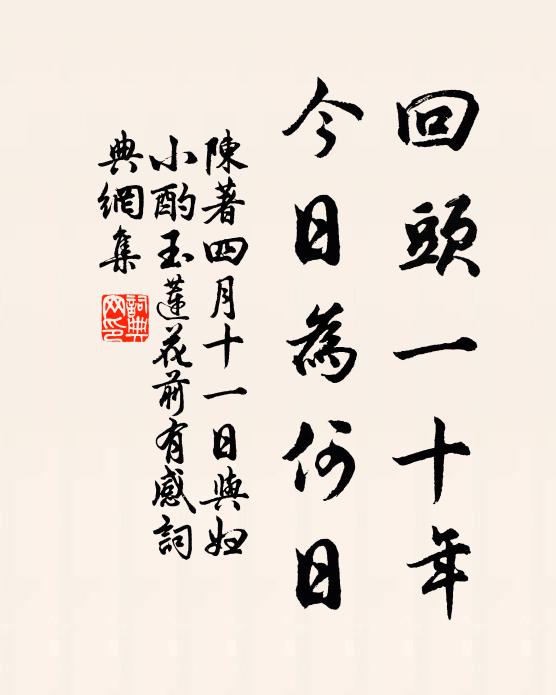 回頭一十年
今日為何日
陳著四月十一日與妲
小酌玉蓮花前有感詞
典網集
詞典網印